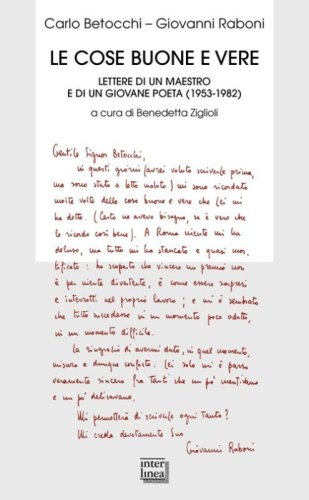 Carlo Betocchi – Giovanni Raboni
LE COSE BUONE E VERE
LETTERE DI UN MAESTRO
E DI UN GIOVANE POETA (1953-1982)
a cura di Benedetta Ziglioli
Gentile Signor Betocchi,
in questi giorni (avrei voluto scriverle prima,
ma sono stato a letto malato) mi sono ricordato
molte volte delle cose buone e vere che Lei mi
ha dette. (Certo ne avevo bisogno, se è vero che
le ricordo così bene). A Roma niente mi ha
deluso, ma tutto mi ha stancato e quasi mor-
tificato: ho scoperto che vincere un premio non
è per niente divertente, è come essere sorpresi
e interrotti nel proprio lavoro; e mi è sembrato
che tutto succedesse in un momento poco adatto,
in un momento difficile.
La ringrazio di avermi dato, in quel momento,
misura e dunque conforto. (Lei solo mi è parso
veramente sincero fra tanti che un po' mentivano
e un po' deliravano.
Mi permetterà di scriverle ogni tanto?
Mi creda devotamente Suo
Giovanni Raboni
inter
linea